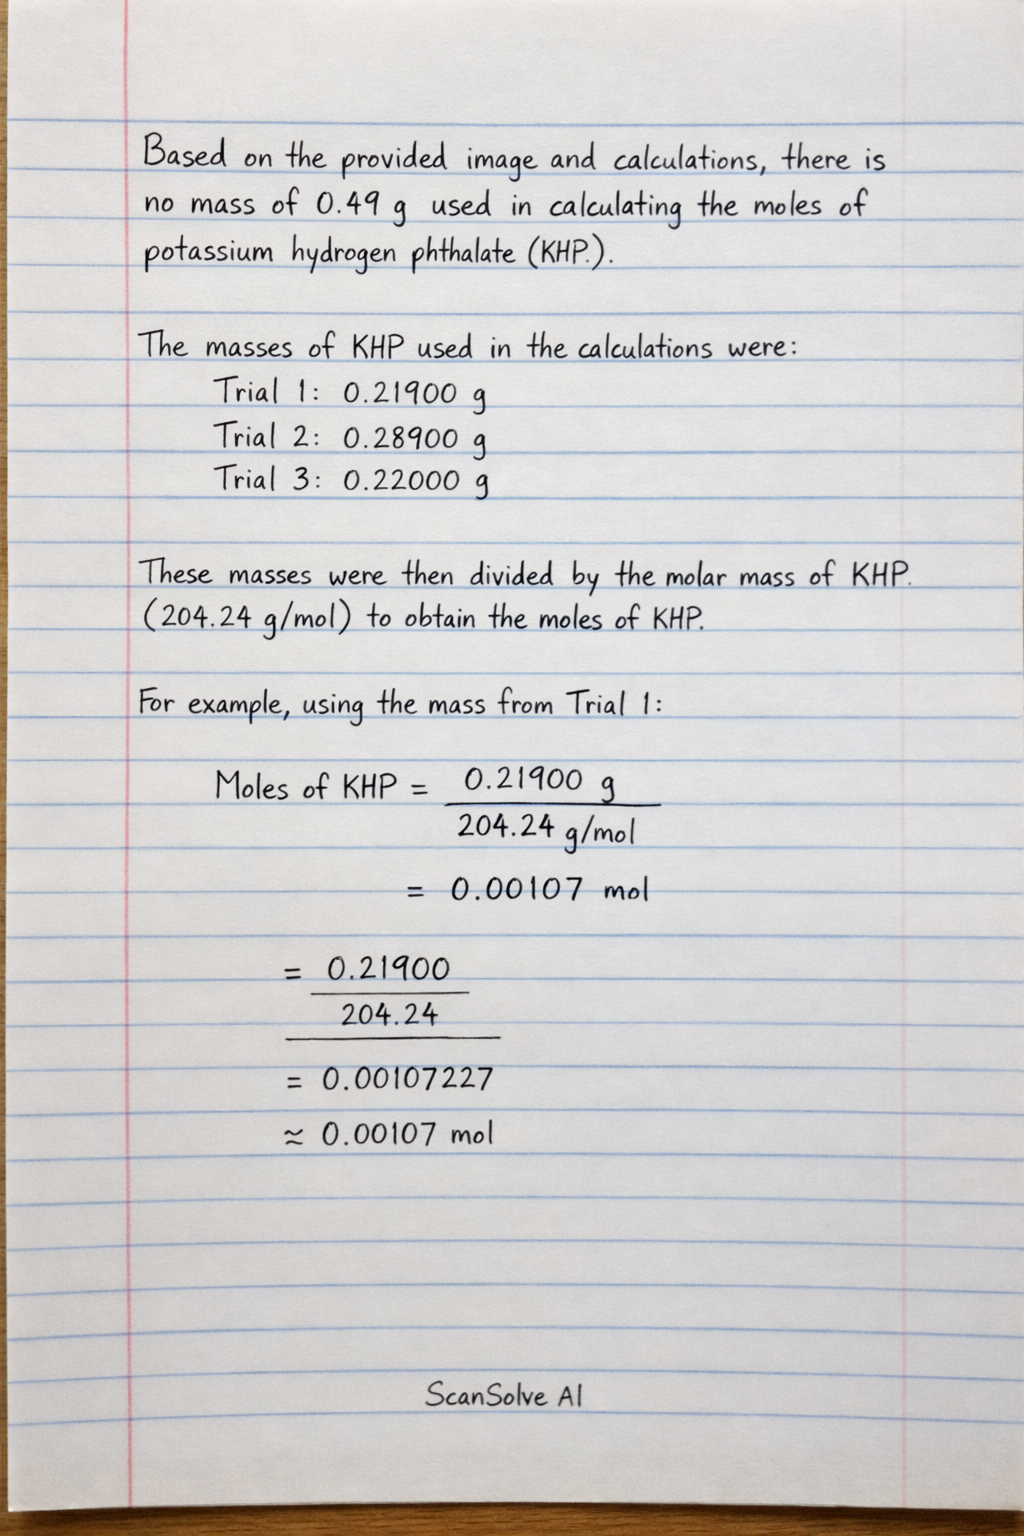 Based on the provided image and calculations, there is
no mass of 0.49 g used in calculating the moles of
potassium hydrogen phthalate (KHP.).
The masses of KHP used in the calculations were:
Trial 1: 0.21900 g
Trial 2: 0.28900 g
Trial 3: 0.22000 g
These masses were then divided by the molar mass of KHP.
(204.24 g/mol) to obtain the moles of KHP.
For example, using the mass from Trial 1:
Moles of KHP = 0.21900 g
204.24 g/mol
= 0.00107 mol
= 0.21900
204.24
= 0.00107227
≈ 0.00107 mol
ScanSolve AI